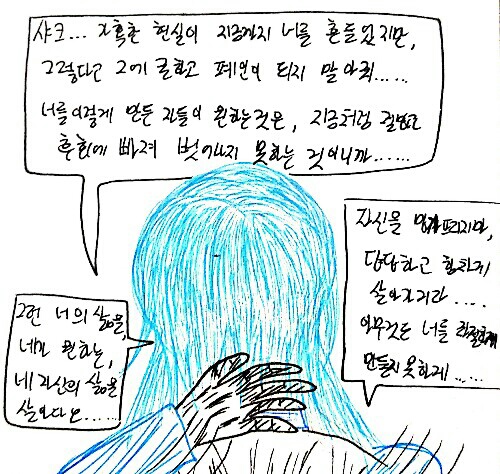 샤크... 가혹한 현실이 지금까지 너를 흔들었지만,
그렇다고 그에 굴하고 폐인이 되지 말아줘.....
너를 이렇게 만든 자들이 원하는것은, 지금처럼 절망과
후회에 빠져 벗어나지 못하는 것이니까......
자신을 망가뜨리지마,
당당하고 강하게
살아가거라....
아무것도 너를 좌절하게
만들지 못하게......
그런 너의 삶을,
네가 원하는,
네 자신의 삶을
살아다오......